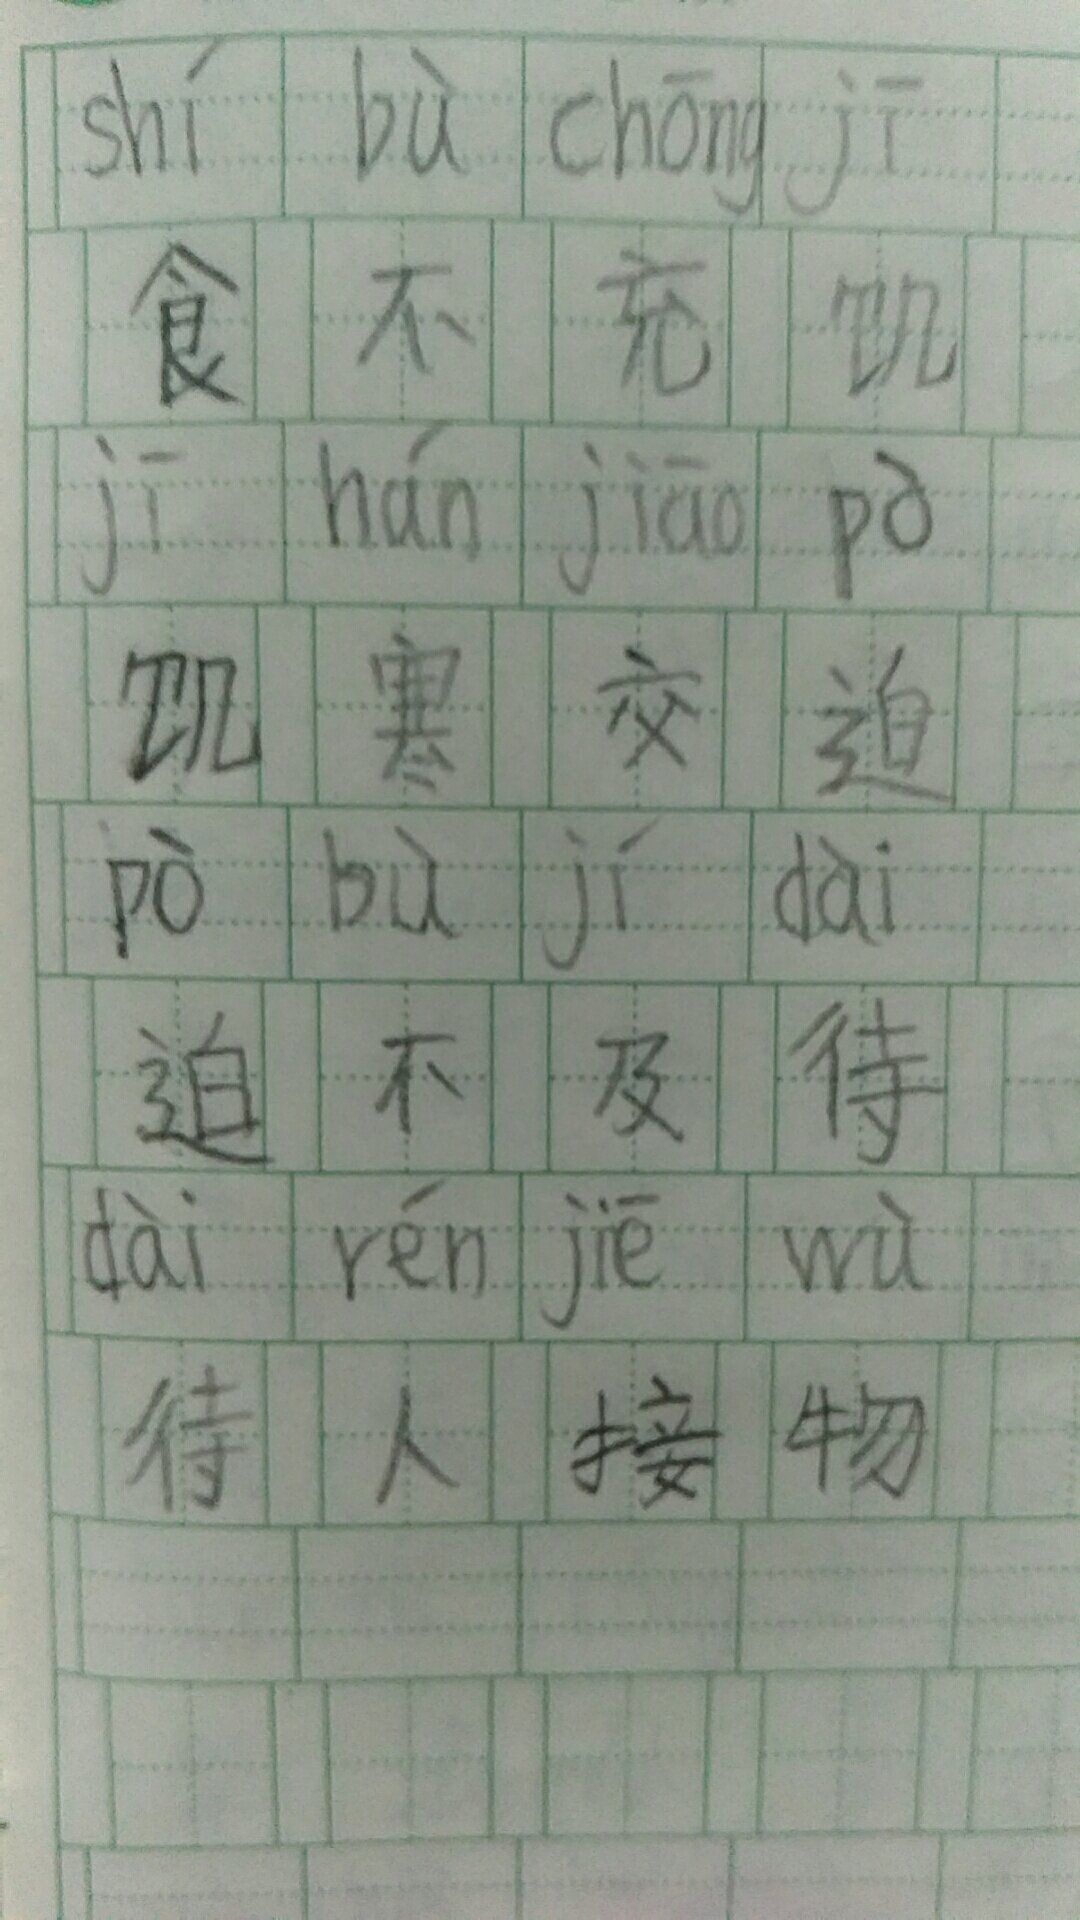 shí bù chōng jī
食不充饥
jī hán jiāo pò
饥寒交迫
pò bù jí dài
迫不及待
dài rén jiē wù
待人接物